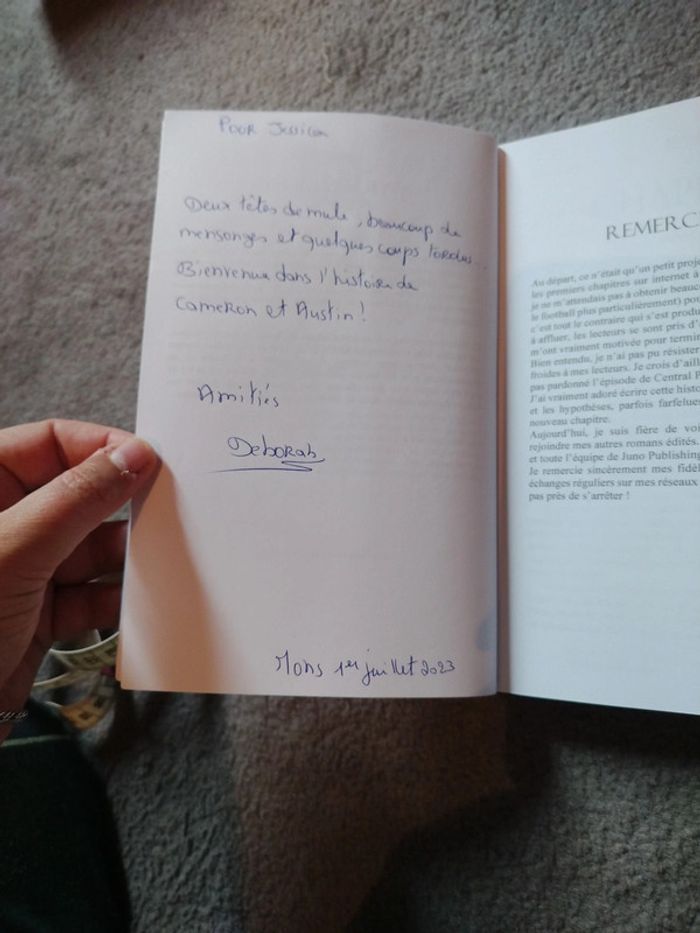 Pour Jessica
Deux têtes de mule, beaucoup de
mensonges et quelques coups tordus...
Bienvenue dans l'histoire de
Cameron et Austin !
Amitiés
Deborah
Mons 1er juillet 2023
REMERC
Au départ, ce n'était qu'un petit proj
les premiers chapitres sur internet à
je ne m'attendais pas à obtenir beauc
le football plus particulièrement) po
c'est tout le contraire qui s'est produ
à affluer, les lecteurs se sont pris d'
m'ont vraiment motivée pour termin
Bien entendu, je n'ai pas pu résister
froides à mes lecteurs. Je crois d'aill
pas pardonné l'épisode de Central P
J'ai vraiment adoré écrire cette histo
et les hypothèses, parfois farfelue
nouveau chapitre.
Aujourd'hui, je suis fière de voi
rejoindre mes autres romans édités.
et toute l'équipe de Juno Publishing
Je remercie sincèrement mes fidèl
échanges réguliers sur mes réseaux
pas près de s'arrêter !